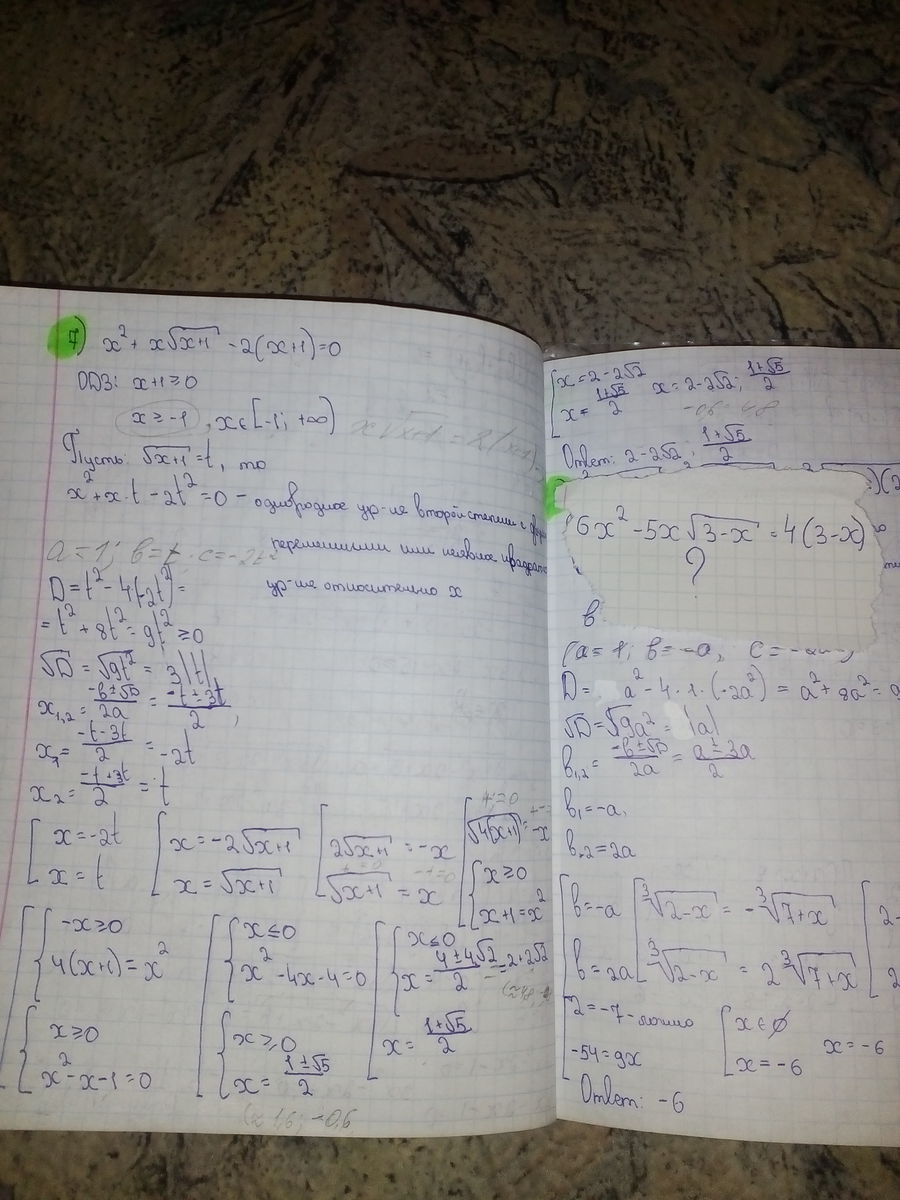 7) x² + x√(x+1) - 2(x+1) = 0
ОДЗ: x+1 ≥ 0
x ≥ -1, x ∈ [-1; +∞)
Пусть: √(x+1) = t, то
x² + x·t - 2t² = 0 - однородное ур-ие второй степени с
переменными или неявное
ур-ие относительно x
a = 1; b = t; c = -2t²
D = t² - 4(-2t²) =
= t² + 8t² = 9t² ≥ 0
√D = √9t² = 3|t|
x₁,₂ = (-b±√D)/2a = (-t±3t)/2;
x₁ = (-t-3t)/2 = -2t
x₂ = (-t+3t)/2 = t
[ x = -2t [ x = -2√(x+1) [ 2√(x+1) = -x [ √4(x+1) = -x
x = t x = √(x+1) √(x+1) = x { x ≥ 0
x+1 = x²
[ { -x ≥ 0 [ { x ≤ 0 [ { x ≤ 0
4(x+1) = x² x² - 4x - 4 = 0 x = (4±4√2)/2 = 2±2√2
{ x ≥ 0 { x ≥ 0 x = (1+√5)/2
x² - x - 1 = 0 x = (1±√5)/2
[ x = 2-2√2 x = 2-2√2; (1+√5)/2
x = (1+√5)/2
Ответ: 2-2√2; (1+√5)/2
6x² - 5x√(3-x) = 4(3-x)
?
в
(a = 1; b = -a, c =
D = a² - 4·1·(-2a²) = a² + 8a² = 9
√D = √9a² = |a|
b₁,₂ = (-b±√D)/2a = (a±3a)/2
b₁ = -a,
b₂ = 2a
[ b = -a [ ³√(2-x) = -³√(7+x) [ 2-
b = 2a ³√(2-x) = 2³√(7+x) 2
[ 2 = -7 - ложно [ x ∈ ∅ x = -6
-54 = 9x x = -6
Ответ: -6